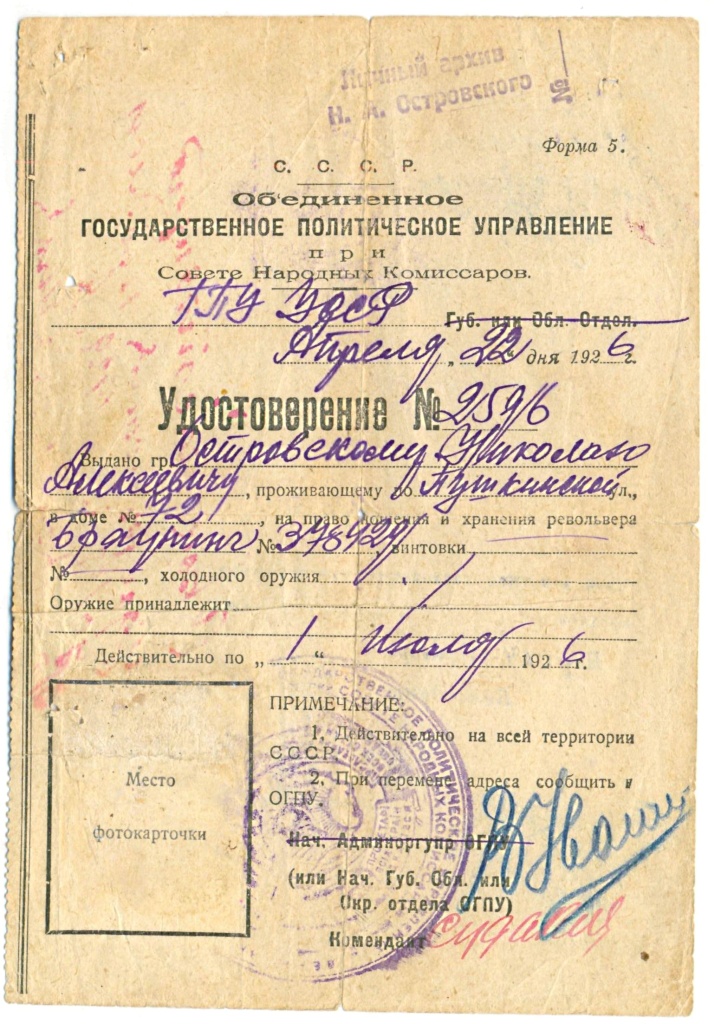 Личный архив
Н. А. Островского
№
Форма 5.
С. С. С. Р.
Об'единенное
ГОСУДАРСТВЕННОЕ ПОЛИТИЧЕСКОЕ УПРАВЛЕНИЕ
при
Совете Народных Комиссаров.
ГПУ УССР Губ. или Обл. Отдел.
Апреля „22“ дня 1926 г.
Удостоверение №
Выдано гр. Островскому Николаю
Алексеевичу, проживающему по Пушкинской ул.,
в доме № 72, на право ношения и хранения револьвера
браунинг № винтовки
№, холодного оружия
Оружие принадлежит
Действительно по „1“ июля 1926 г.
ПРИМЕЧАНИЕ:
1. Действительно на всей территории
СССР.
2. При перемене адреса сообщить в
ОГПУ.
Место
фотокарточки
Нач. Админоргупр ОГПУ
(или Нач. Губ. Обл. или
Окр. отдела ОГПУ)
Комендант